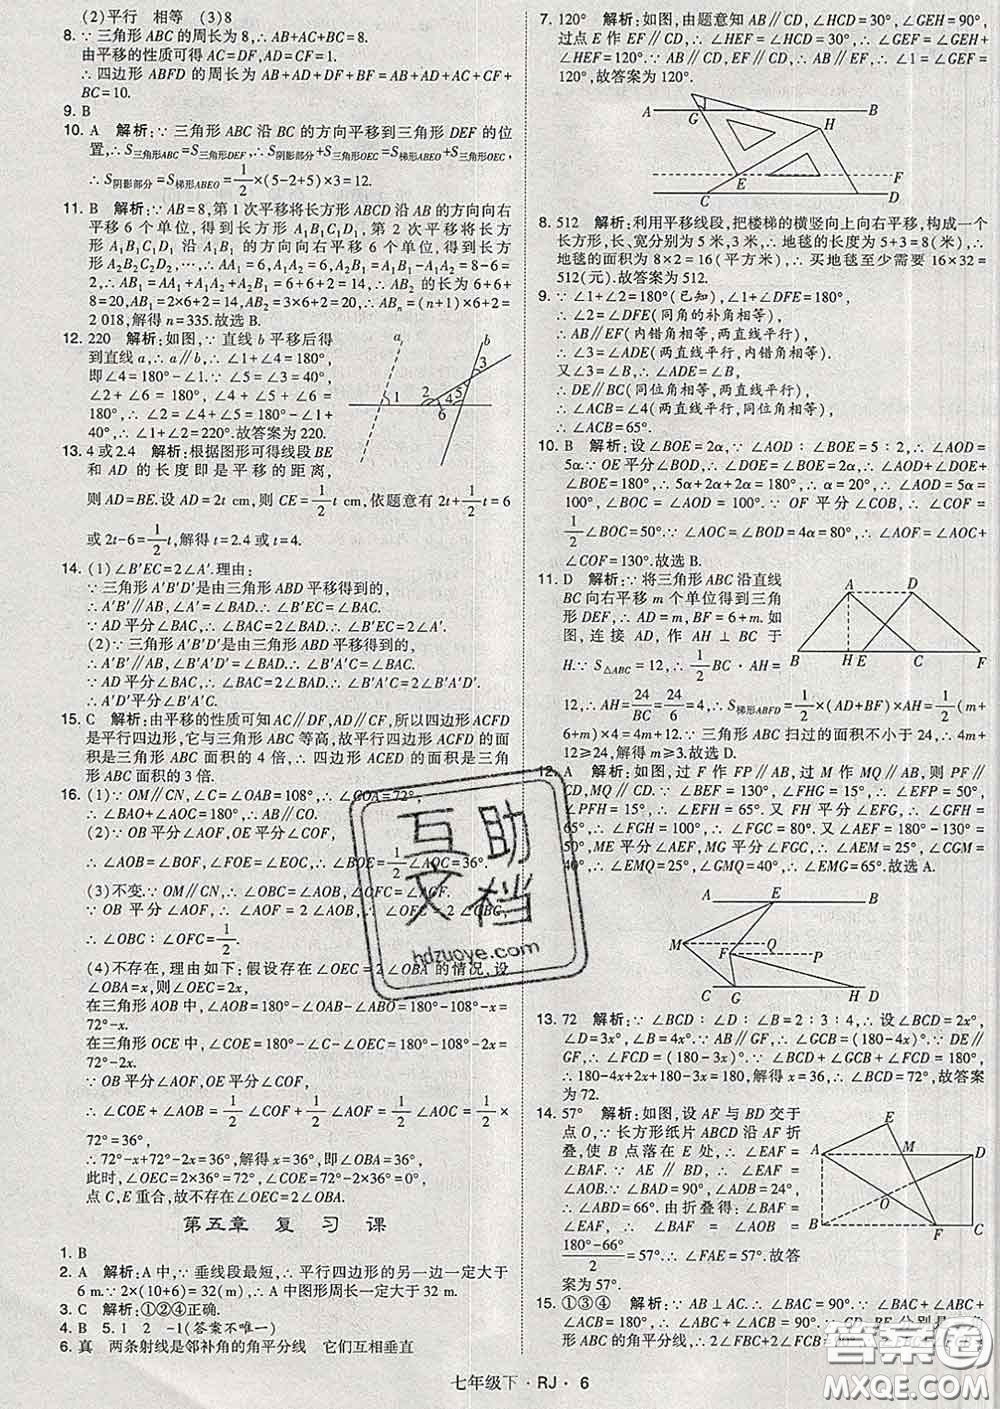 (2)平行　相等　(3)8
8. ∵ 三角形 ABC 的周长为 8,∴ AB+AC+BC=8.
由平移的性质可得 AC=DF,AD=CF=1.
∴ 四边形 ABFD 的周长为 AB+AD+DF+BF=AB+AD+AC+CF+
BC=10.
9. B
10. A　解析:∵ 三角形 ABC 沿 BC 的方向平移到三角形 DEF 的位
置,∴ S三角形ABC=S三角形DEF,∴ S阴影部分+S三角形OEC=S梯形ABEO+S三角形OEC,
∴ S阴影部分=S梯形ABEO=1/2×(5-2+5)×3=12.
11. B　解析:∵ AB=8,第 1 次平移将长方形 ABCD 沿 AB 的方向向右
平移 6 个单位,得到长方形 A₁B₁C₁D₁,第 2 次平移将长方形
A₁B₁C₁D₁ 沿 A₁B₁ 的方向向右平移 6 个单位,得到长方形
A₂B₂C₂D₂…,∴ AA₁=6,A₁A₂=6,A₂B₁=A₁B₁-A₁A₂=8-6=
2,∴ AB₁=AA₁+A₁A₂+A₂B₁=6+6+2=14,∴ AB₂ 的长为 6+6+
8=20,AB₁=2×6+2=14,AB₂=3×6+2=20,∴ ABₙ=(n+1)×6+2=
2 018,解得 n=335.故选 B.
12. 220　解析:如图,∵ 直线 b 平移后得
到直线 a,∴ a∥b,∴ ∠1+∠4=180°,
即∠4=180°-∠1.∵ ∠5=∠3=40°,
∠2+∠6=180°,∴ ∠2+∠4+∠5=
180°,∴ ∠2+180°-∠1+
40°,∴ ∠1+∠2=220°.故答案为 220.
13. 4 或 2.4　解析:根据图形可得线段 BE
和 AD 的长度即是平移的距离,
则 AD=BE.设 AD=2t cm,则 CE=1/2t cm,依题意有 2t+1/2t=6
或 2t-6=1/2t,解得 t=2.4 或 t=4.
14. (1)∠B′EC=2∠A′.理由:
∵ 三角形 A′B′D′是由三角形 ABD 平移得到的,
∴ A′B′∥AB,∠A′=∠BAD.∴ ∠B′EC=∠BAC.
∵ AD 平分∠BAC,∴ ∠BAC=2∠BAD.∴ ∠B′EC=2∠A′.
(2)∵ 三角形 A′B′D′是由三角形 ABD 平移得到的,
∴ A′B′∥AB,∠B′A′D′=∠BAD.∴ ∠B′A′C=∠BAC.
∵ AD 平分∠BAC,∴ ∠BAC=2∠BAD.∴ ∠B′A′C=2∠B′A′D′.
∴ A′D′平分∠B′A′C.
15. C　解析:由平移的性质可知 AC∥DF,AD∥CF,所以四边形 ACFD
是平行四边形,它与三角形 ABC 等高,故平行四边形 ACFD 的
面积是三角形 ABC 面积的 4 倍,∴ 四边形 ACED 的面积是三角
形 ABC 面积的 3 倍.
16. (1)∵ OM∥CN,∠C=∠OAB=108°,∴ ∠COA=72°,
∴ ∠BAO+∠AOC=180°,∴ AB∥CO.
(2)∵ OB 平分∠AOF,OE 平分∠COF,
∴ ∠AOB=∠BOF,∠FOE=∠EOC,∴ ∠BOE=1/2∠AOC=36°.
(3)不变.∵ OM∥CN,
∵ OB 平分∠AOF,∴ ∠AOF=2∠AOB,
∴ ∠OBC∶∠OFC=1/2.
(4)不存在,理由如下:假设存在∠OEC=2∠OBA 的情况,设
∠OBA=x,则∠OEC=2x,
在三角形 AOB 中,∠AOB=180°-∠OAB-∠ABO=180°-108°-x=
72°-x.
在三角形 OCE 中,∠COE=180°-∠C-∠OEC=180°-108°-2x=
72°-2x.
∵ OB 平分∠AOF,OE 平分∠COF,
∴ ∠COE+∠AOB=1/2∠COF+1/2∠AOF=1/2∠AOC=1/2×
72°=36°,
∴ 72°-2x+72°-x=36°,解得 x=36°,即∠OBA=36°,
此时,∠OEC=2×36°=72°,∠COE=72°-2×36°=0°,
点 C,E 重合,故不存在∠OEC=2∠OBA.
第五章　复　习　课
1. B
2. A　解析:A 中,∵ 垂线段最短,∴ 平行四边形的另一边一定大于
6 m.∵ 2×(10+6)=32(m),∴ A 中图形周长一定大于 32 m.
3. C　解析:①②④正确.
4. B　5. 1　2　-1(答案不唯一)
6. 真　两条射线是邻补角的角平分线　它们互相垂直
7. 120°　解析:如图,由题意知 AB∥CD,∠HCD=30°,∠GEH=90°,
过点 E 作 EF∥CD,∴ ∠HEF=∠HCD=30°,∴ ∠GEF=∠GEH+
∠HEF=120°.∵ AB∥CD,EF∥CD,∴ AB∥EF,∴ ∠1=∠GEF=
120°,故答案为 120°.
8. 512　解析:利用平移线段,把楼梯的横竖向上向右平移,构成一个
长方形,长、宽分别为 5 米,3 米,∴ 地毯的长度为 5+3=8(米),∴
地毯的面积为 8×2=16(平方米),∴ 买地毯至少需要 16×32=
512(元).故答案为 512.
9. ∵ ∠1+∠2=180°(已知),∠1+∠DFE=180°,
∴ ∠2=∠DFE(同角的补角相等),
∴ AB∥EF(内错角相等,两直线平行),
∴ ∠3=∠ADE(两直线平行,内错角相等).
又∠3=∠B,∴ ∠ADE=∠B,
∴ DE∥BC(同位角相等,两直线平行),
∴ ∠ACB=∠4(两直线平行,同位角相等),
∴ ∠ACB=65°.
10. B　解析:设∠BOE=2α,∵ ∠AOD∶∠BOE=5∶2,∴ ∠AOD=
5α.∵ OE 平分∠BOD,∴ ∠DOE=∠BOE=2α,∴ ∠AOD+∠DOE+
∠BOE=180°,∴ 5α+2α+2α=180°,∴ α=20°,∴ ∠AOD=5α=
100°,∠BOC=∠AOD=100°.∵ OF 平分∠COB,∴ ∠COF=
1/2∠BOC=50°.∵ ∠AOC=∠BOD=4α=80°,∴ ∠AOF=∠AOC+
∠COF=130°.故选 B.
11. D　解析:∵ 将三角形 ABC 沿直线
BC 向右平移 m 个单位得到三角
形 DEF,∴ AD=m,BF=6+m.如
图,连接 AD,作 AH⊥BC 于
H.∵ S△ABC=12,∴ 1/2BC·AH=
12,∴ AH=24/BC=24/6=4,∴ S梯形ABFD=1/2×(AD+BF)×AH=1/2(m+
6+m)×4=4m+12.∵ 三角形 ABC 扫过的面积不小于 24,∴ 4m+
12≥24,解得 m≥3.故选 D.
12. A　解析:如图,过 F 作 FP∥AB,过 M 作 MQ∥AB,则 PF∥
CD,MQ∥CD.∵ ∠BEF=130°,∠FHG=15°,∴ ∠EFP=50°,
∠PFH=15°,∴ ∠EFH=65°.又 FH 平分∠EFG,∴ ∠GFH=
65°,∴ ∠FGH=100°,∴ ∠FGC=80°.又∵ ∠AEF=180°-130°=
50°,ME 平分∠AEF,MG 平分∠FGC,∴ ∠AEM=25°,∠CGM=
40°,∴ ∠EMQ=25°,∠GMQ=40°,∴ ∠EMG=65°.故选 A.
13. 72　解析:∵ ∠BCD∶∠D∶∠B=2∶3∶4,∴ 设∠BCD=2x°,
∠D=3x°,∠B=4x°.∵ AB∥GF,∴ ∠GCB=(180-4x)°.∵ DE∥
GF,∴ ∠FCD=(180-3x)°.∵ ∠BCD+∠GCB+∠FCD=180°,
∴ 180-4x+2x+180-3x=180,解得 x=36,∴ ∠BCD=72°,故答案
为 72.
14. 57°　解析:如图,设 AF 与 BD 交于
点 O,∵ 长方形纸片 ABCD 沿 AF 折
叠,使 B 点落在 E 处,∴ ∠EAF=
∠BAF.∵ AE∥BD,∴ ∠EAF=
∠AOB.∵ ∠BAD=90°,∠ADB=24°,∴
∠ABD=66°.由折叠得:∠BAF=
∠EAF,∴ ∠BAF=∠AOB=
(180°-66°)/2=57°.∴ ∠FAE=57°.故答
案为 57°.
15. ①③④　解析:∵ AB⊥AC.∴ ∠BAC=90°.∵ ∠BAC+∠ABC+
∠ACB=180°,∴ ∠ABC+∠ACB=90°
形 ABC 的角平分线,∴ 2∠FBC+2∠FCB=
七年级下·RJ·6
互助
文档
hdzuoye.com
答案圈
MXQE.COM